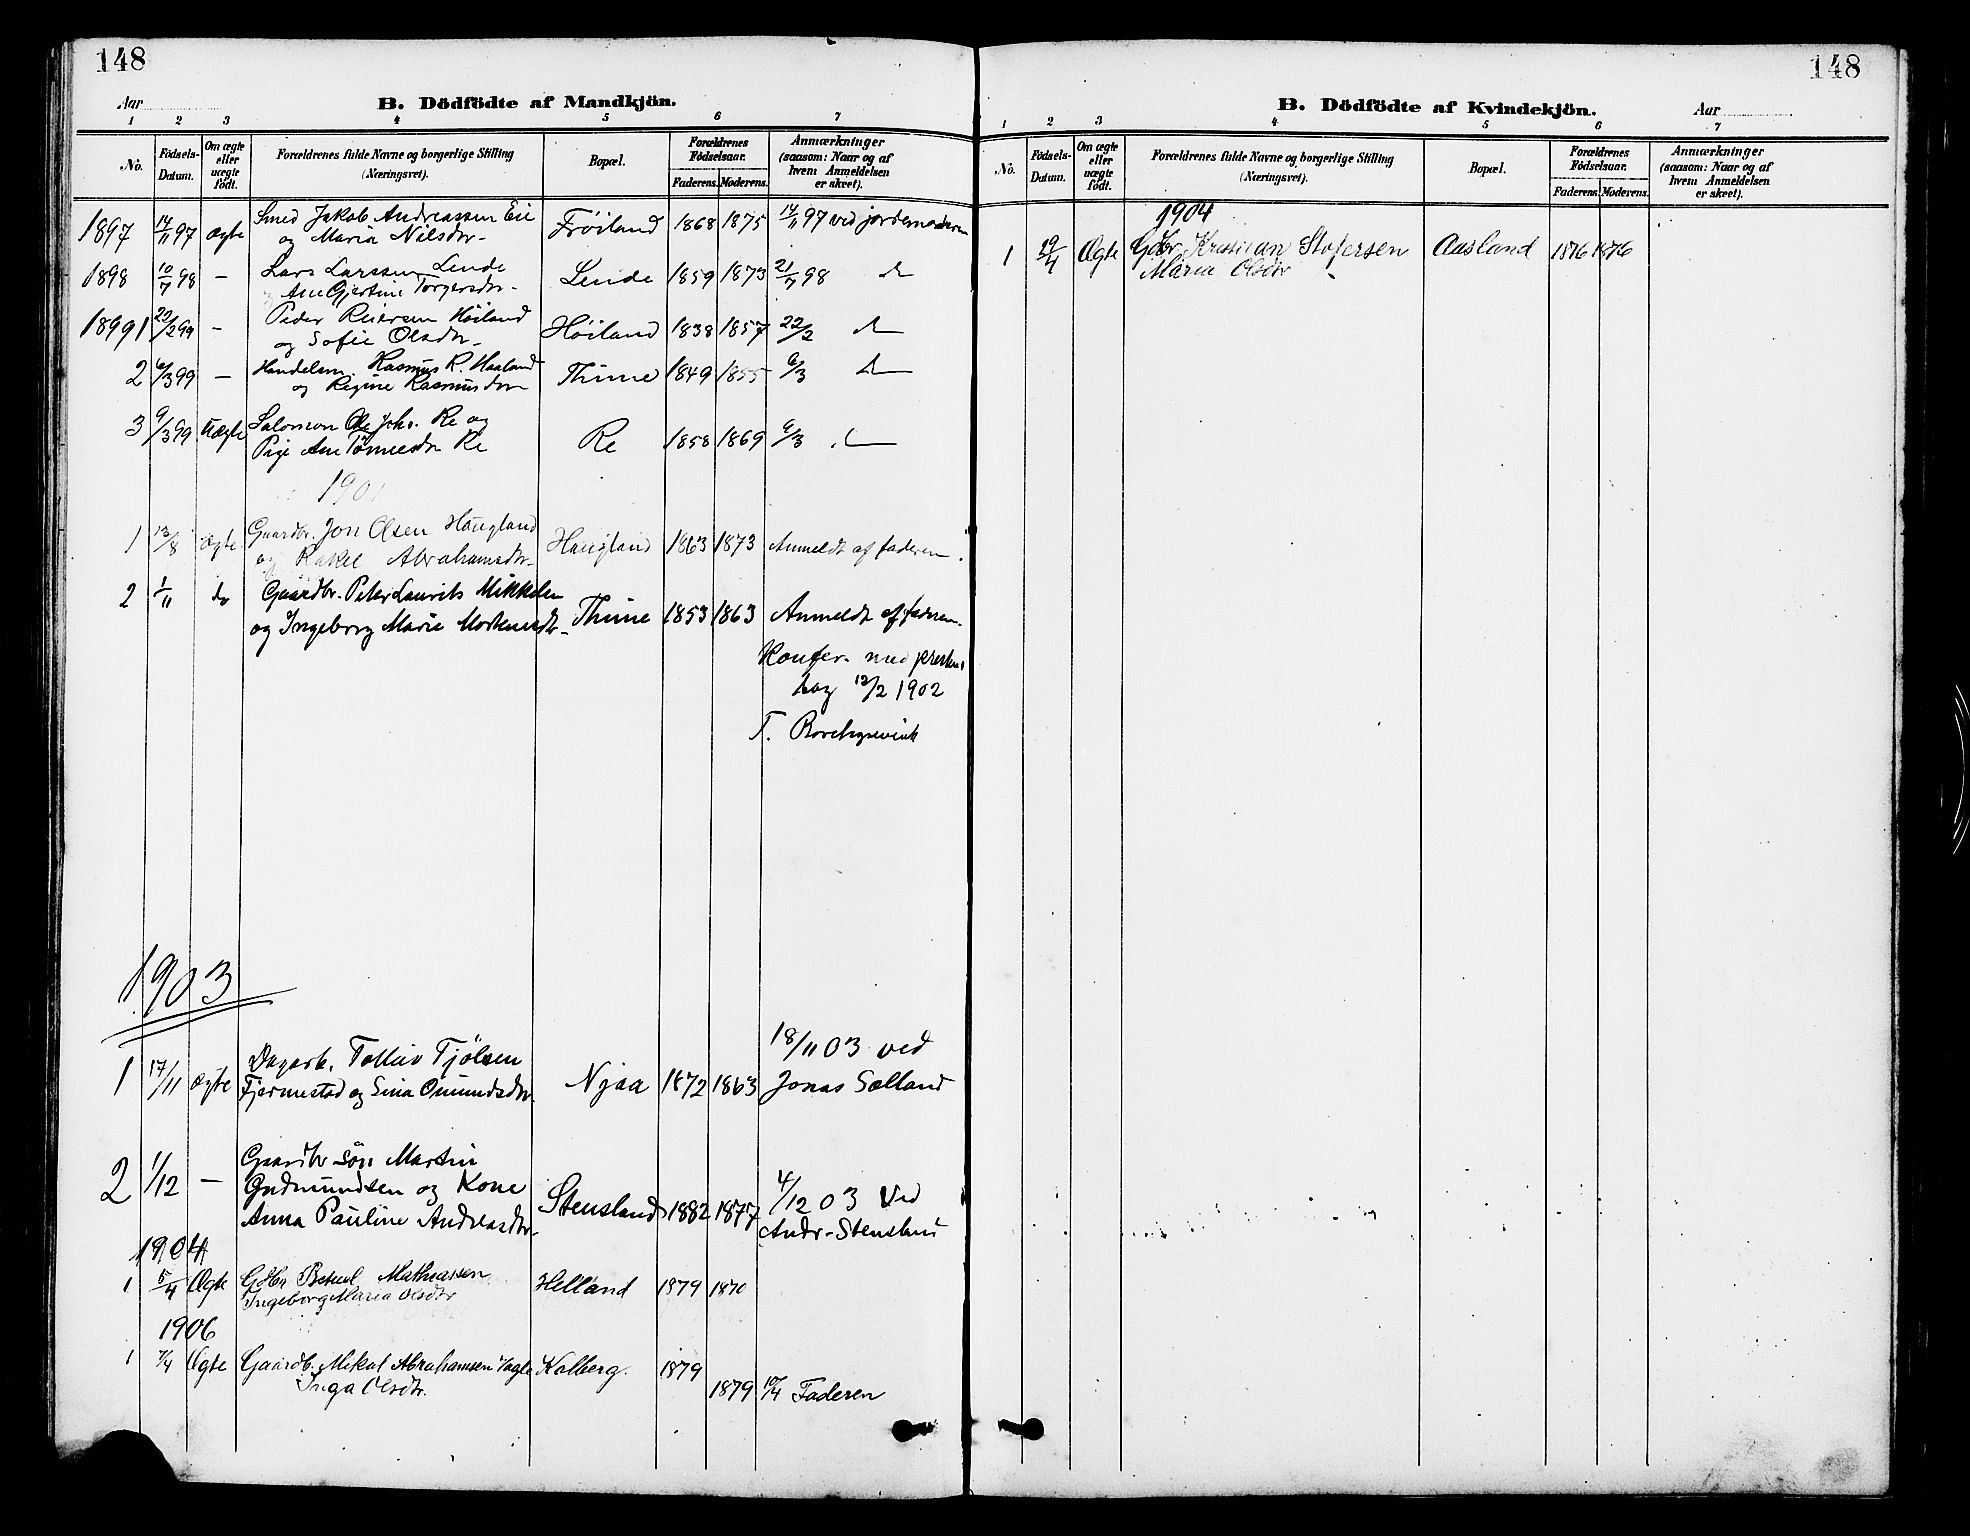 148
Aar
B. Dödfödte af Mandkjön.
1 2 3 4 5 6 7
No. Födsels-Datum. Om ægte eller uægte födt. Forældrenes fulde Navne og borgerlige Stilling (Næringsvei). Bopæl. Forældrenes Födselsaar. Faderens. Moderens. Anmærkninger (saasom: Naar og af hvem Anmeldelsen er skeet).
1897 14/11 97 Ægte Smed Jakob Andreassen Eie Fröiland 1868 1875 14/11 97 ved jordemoderen
og Maria Nilsdtr
1898 10/7 98 – Lars Larssen Lende Lende 1859 1873 21/7 98 do
Ane Gjertine Torgersdtr
1899 1 22/2 99 – Peder Reiersen Höiland Höiland 1838 1857 22/2 do
og Sofie Olsdtr
2 6/3 99 – Handelsm. Rasmus R. Haaland Thime 1849 1855 6/3 do
og Regine Rasmusdtr
3 9/3 99 Uægte Salomon Ole Johs. Re og Re 1858 1869 9/3
Pige Ane Tönnesdtr Re
1901
1 12/8 Ægte Gaardbr. Jon Olsen Haugland Haugland 1863 1873 Anmeldt af faderen.
og Rakel Abrahamsdtr
2 1/11 do Gaardbr. Peter Laurits Mikkelsen
og Ingeborg Marie Mortensdtr Thime 1853 1863 Anmeldt af faderen.
Konfer. med presten
12/2 1902
T. Borchgrevink
1903
1 17/11 Ægte Dagarb. Tolliv Tjölsen Njaa 1872 1863 18/11 03 ved
Fjermestad og Sina Omundsdtr. Jonas Sælland
2 1/12 – Gaardbr søn Martin
Gudmundsen og Kone Stensland 1882 1877 4/12 03 Ved
Anna Pauline Andreasdtr. Andr. Stensland
1904
1 5/4 Ægte Gbr. Betuel Mathiassen Helland 1879 1870
Ingeborg Maria Olsdtr
1906
1 7/4 Ægte Gaardb. Mikal Abrahamsen Vagle Kalberg. 1879
Inga Olsdtr. 1879 10/4 Faderen
148
B. Dödfödte af Kvindekjön.
Aar
1 2 3 4 5 6 7
No. Födsels-Datum. Om ægte eller uægte födt. Forældrenes fulde Navne og borgerlige Stilling (Næringsvei). Bopæl. Forældrenes Födselsaar. Faderens. Moderens. Anmærkninger (saasom: Naar og af hvem Anmeldelsen er skeet).
1904
1 19/4 Ægte Gbr. Kristian Stofersen Aasland 1876 1876
Maria Olsdtr